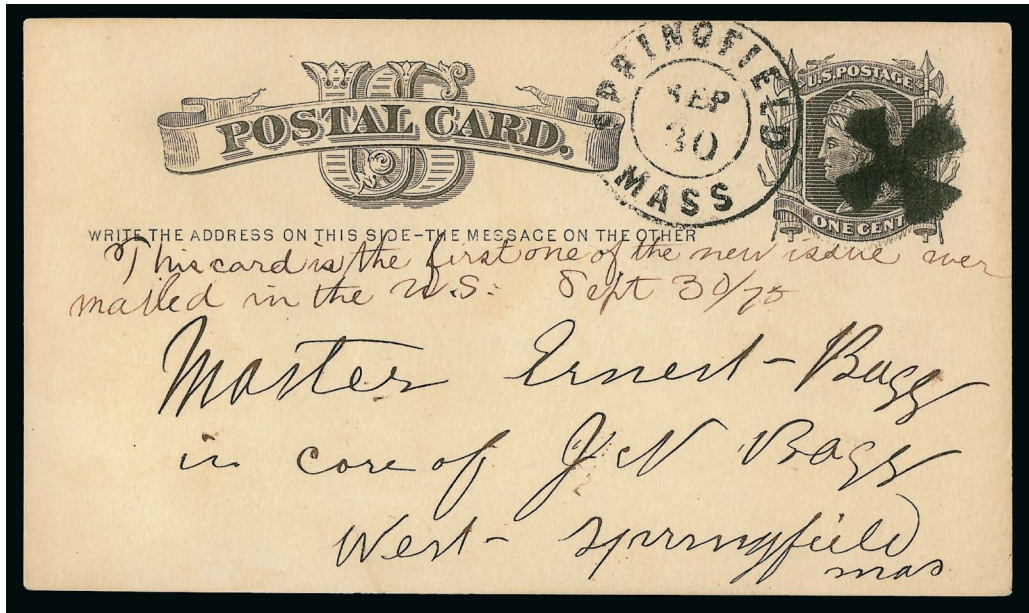 US
POSTAL CARD.
SPRINGFIELD
SEP
30
MASS
U.S. POSTAGE
ONE CENT
WRITE THE ADDRESS ON THIS SIDE–THE MESSAGE ON THE OTHER
This card is the first one of the new issue ever
mailed in the U.S. Sept 30/75
Master Ernest Bagg
in care of J N Bagg
West Springfield
mas